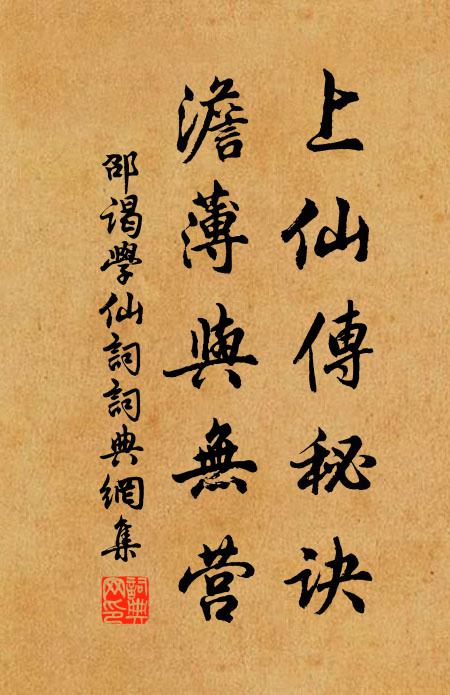 上仙傳秘诀
澹薄與無营
邵谒學仙詞詞典網集
詞典網印